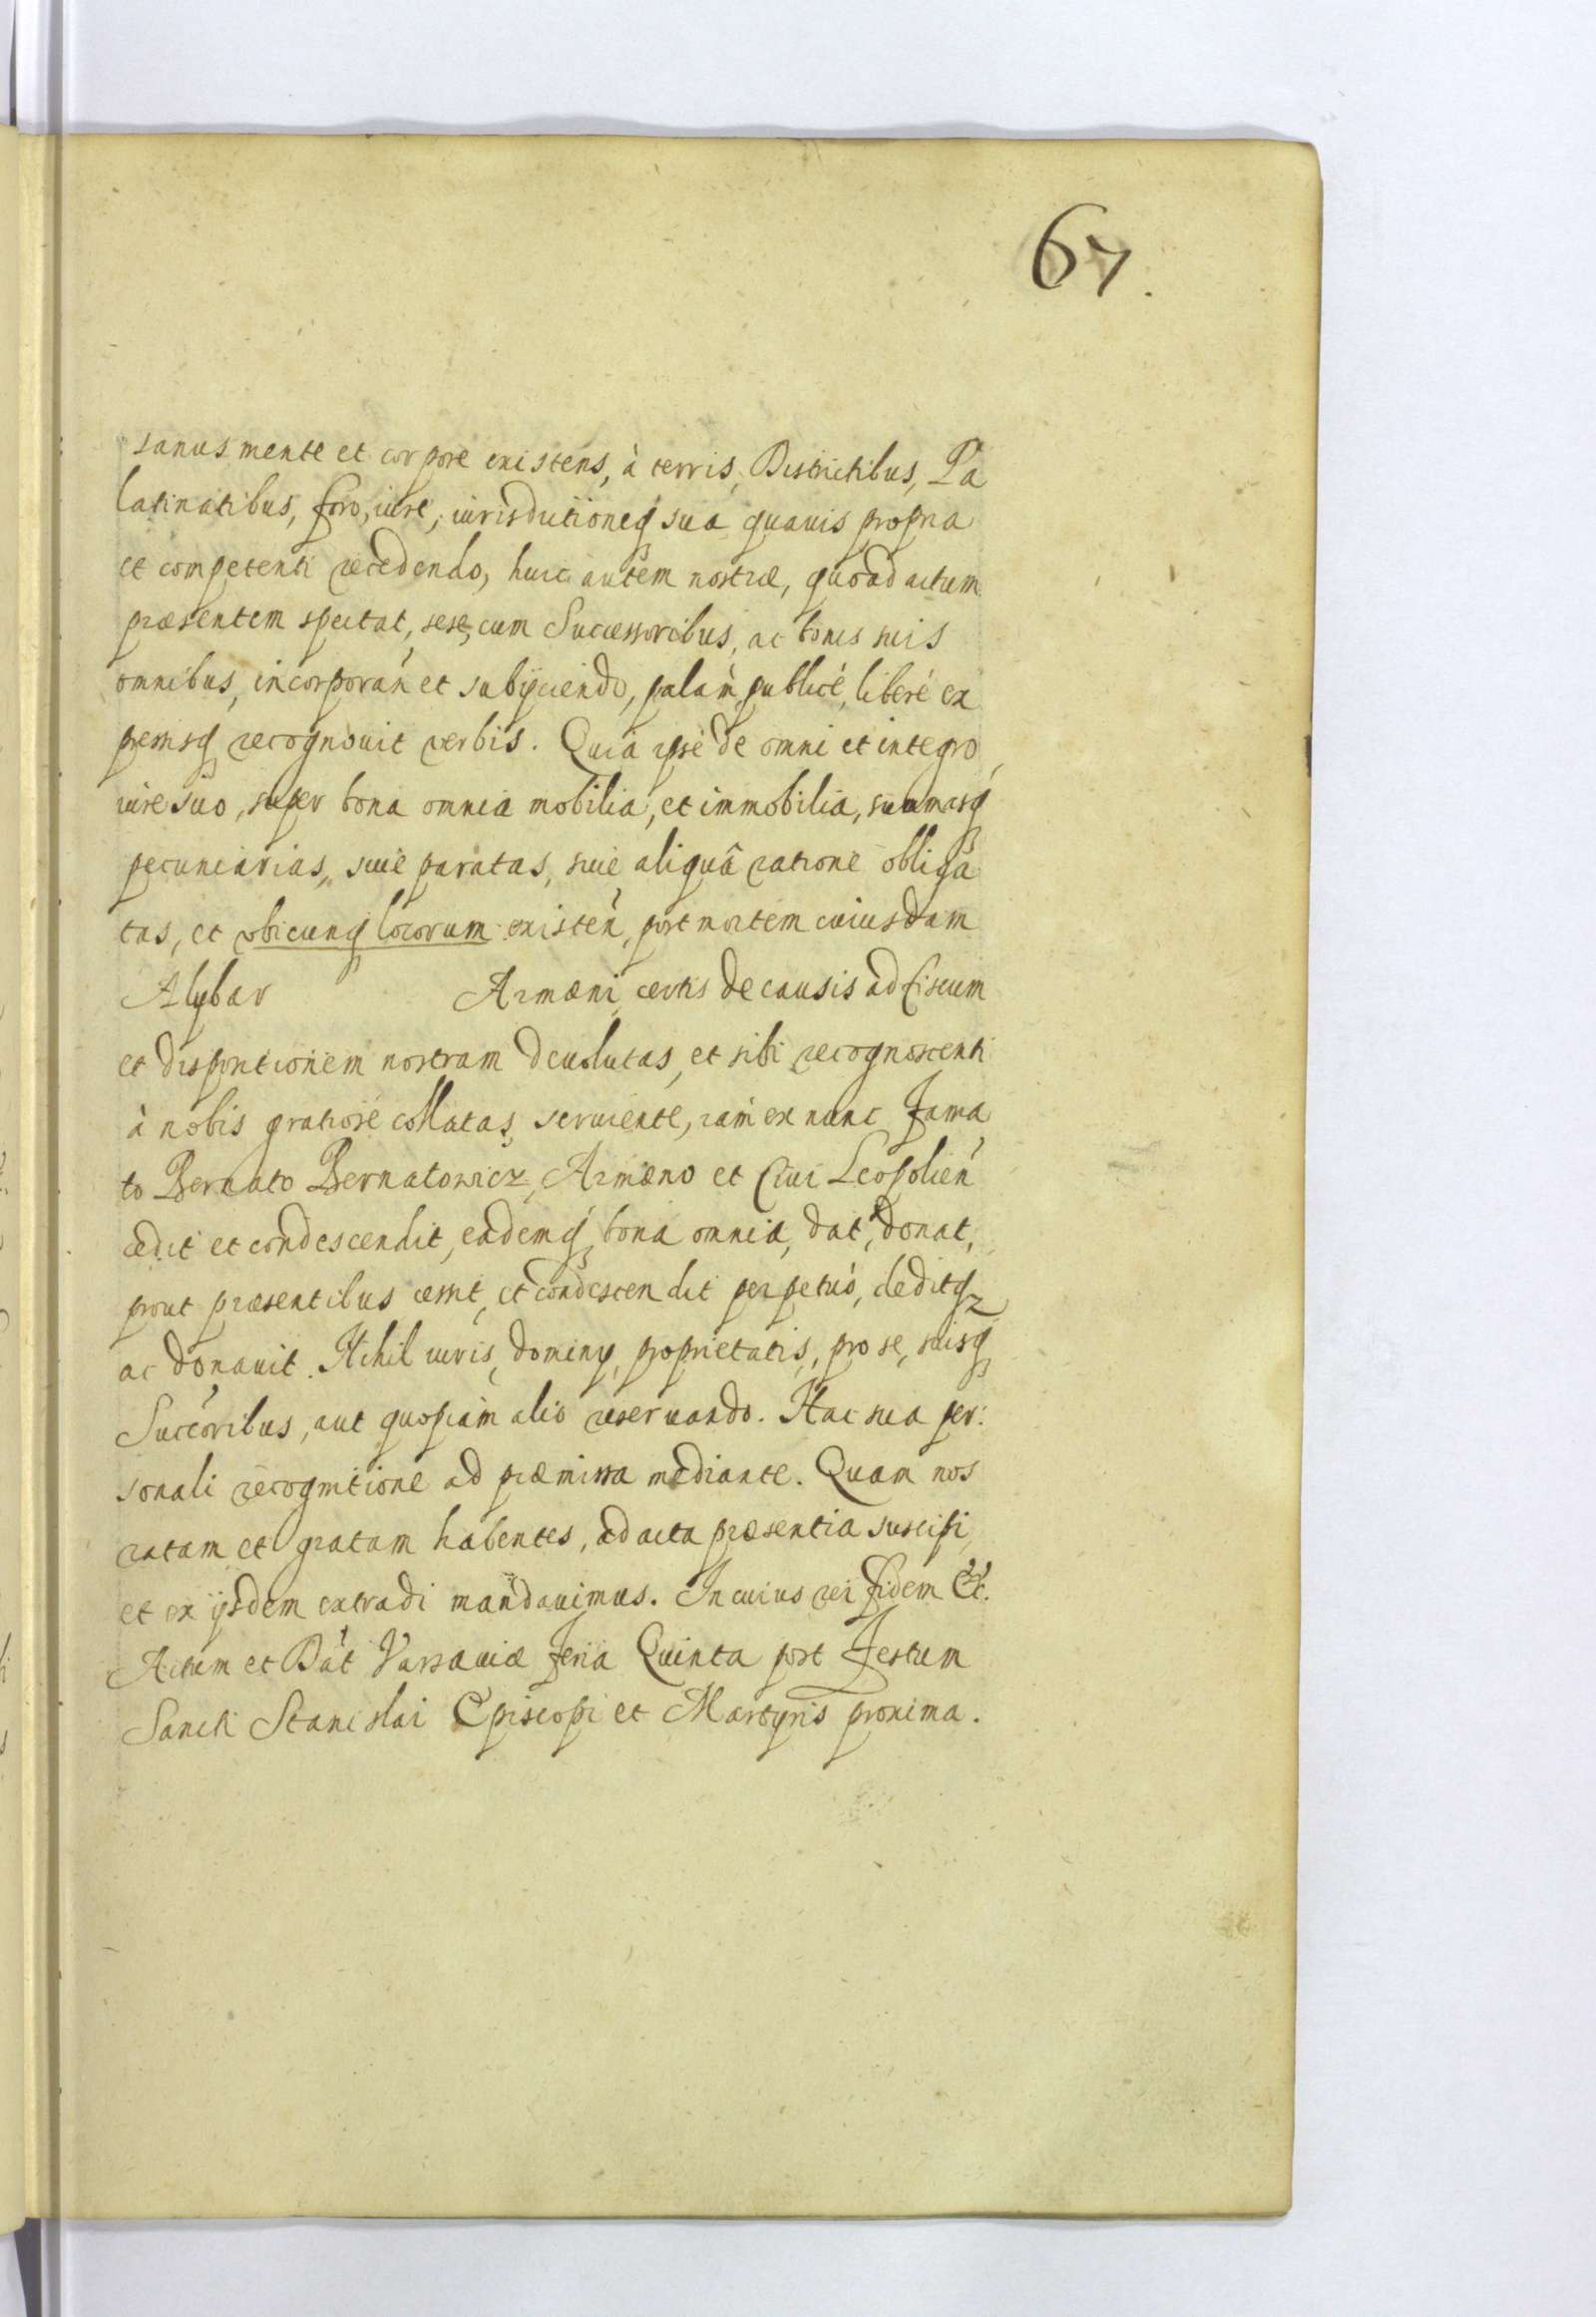 67.
sanus mente et corpore existens, à terris, Districtibus, Pa
latinatibus, foro, iure, iurisdictioneq sua quauis propria
et competenti recedendo, huic autem nostræ, quoad actum
præsentem spectat, sese, cum Successoribus, ac bonis suis
omnibus, incorporan̄ et subijciendo, palàm, publicè, liberè ex
pressisq recognouit verbis. Quia ipse de omni et integro
iure suo, super bona omnia mobilia, et immobilia, summasq
pecuniarias, siue paratas, siue aliquâ ratione obliga
tas, et vbicunq locorum existen̄, post mortem cuiusdam
Alybar Armæni, certis de causis ad fiscum
et dispositionem nostram deuolutas, et sibi recognoscenti
à nobis gratiose collatas, seruiente, iam ex nunc Fama
to Bernato Bernatowicz, Armæno et Ciui Leopolien̄
cedit et condescendit, eademq bona omnia, dat, donat,
prout præsentibus cessit, et condescendit perpetuò, deditqz
ac donauit. Nihil iuris, dominy, proprietatis, pro se, suisq
Succoribus, aut quopiam alio reseruando. Hac sua per:
sonali recognitione ad præmissa mediante. Quam nos
ratam et gratam habentes, ad acta præsentia suscipi,
et ex ijsdem extradi mandauimus. In cuius rei fidem &c.
Actum et Dat Varsauiæ Feria Quinta post Festum
Sancti Stanislai Episcopi et Martyris proxima.